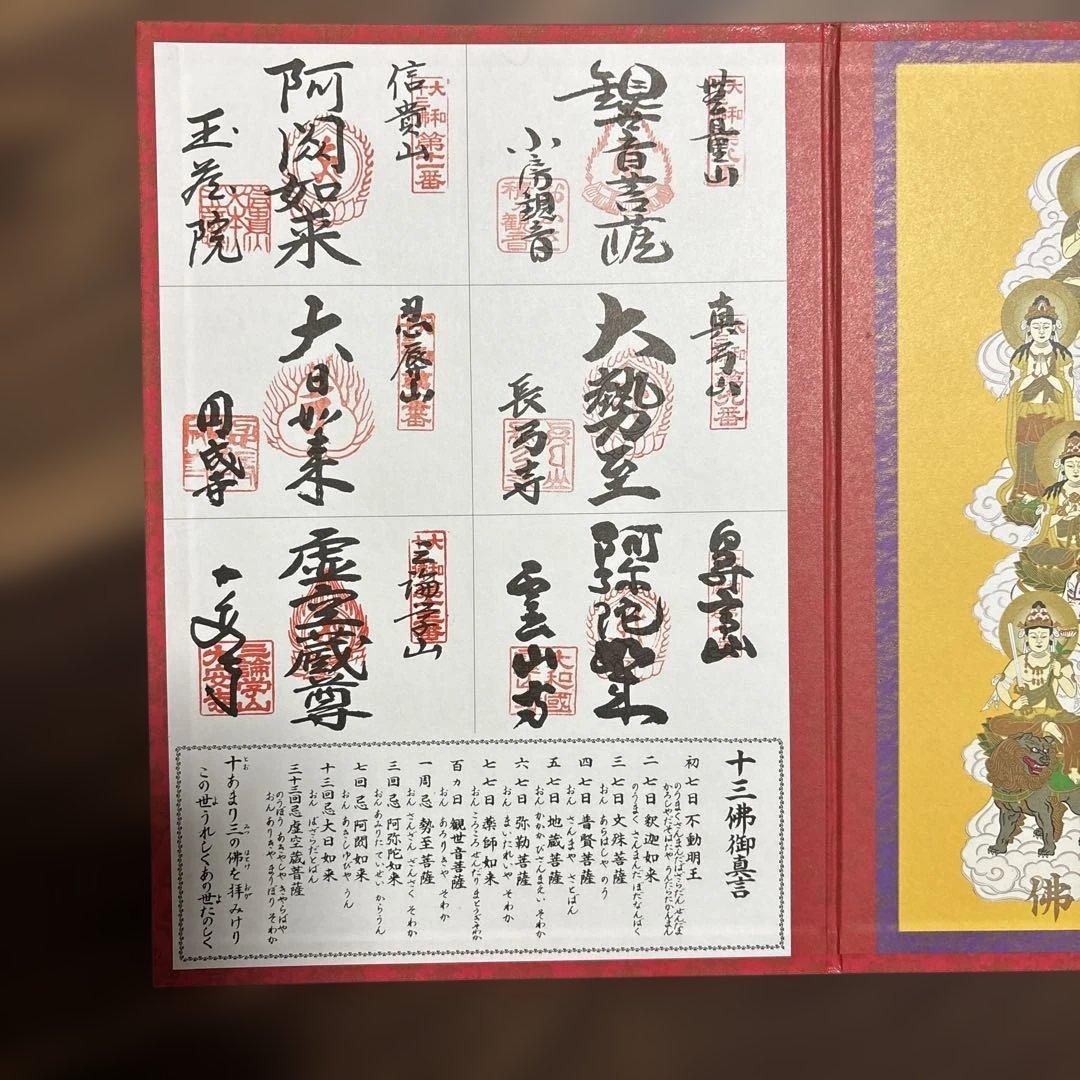 無量山
観音菩薩
小房観音
真弓山
大勢至
長弓寺
鼻高山
阿弥陀如来
霊山寺
信貴山
阿閦如来
玉蔵院
忍辱山
大日如来
円成寺
三論学山
虚空蔵尊
大安寺
十三佛御真言
初七日 不動明王
のうまくさんまんだばざらだん せんだ
かろしやだそはたや うんたらたかんまん
二七日 釈迦如来
のうまく さんまんだ ぼだなんばく
三七日 文殊菩薩
おん あらはしや のう
四七日 普賢菩薩
おん さんまや さとばん
五七日 地蔵菩薩
おん かかか びさんまえい そわか
六七日 弥勒菩薩
おん まいたれいや そわか
七七日 薬師如来
おん ころころ せんだり まとうぎそわか
百ヵ日 観世音菩薩
おん あろりきや そわか
一周忌 勢至菩薩
おん さんざん ざんさく そわか
三回忌 阿弥陀如来
おん あみりた ていせい からうん
七回忌 阿閦如来
おん あきしゆびや うん
十三回忌 大日如来
おん ばざらだとばん
三十三回忌 虚空蔵菩薩
のうぼう あきやしや きやらばや
おん ありきや まりぼり そわか
十あまり三の佛を拝みけり
この世うれしくあの世たのしく
佛